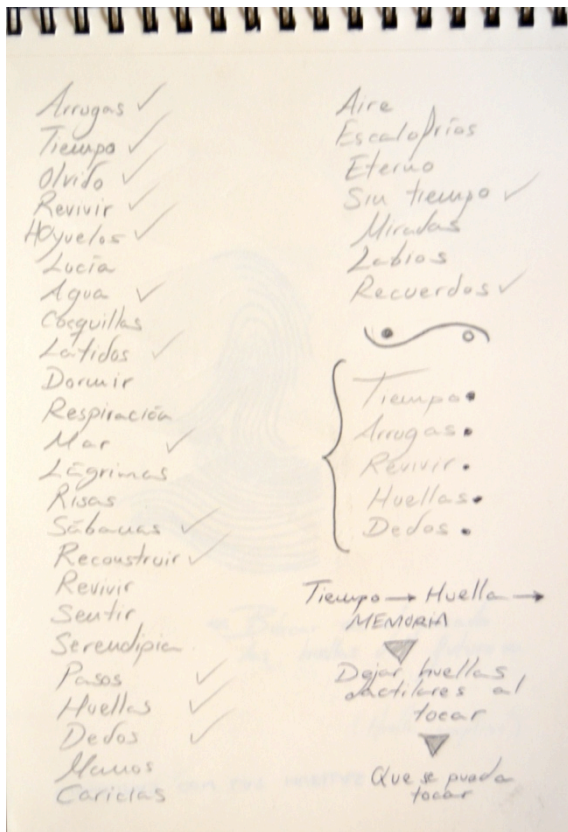 Arrugas ✓
Tiempo ✓
Olvido ✓
Revivir ✓
Hoyuelos ✓
Lucía
Agua ✓
Cosquillas
Latidos ✓
Dormir
Respiración
Mar ✓
Lágrimas
Risas
Sábanas ✓
Reconstruir ✓
Revivir
Sentir
Serendipia
Pasos ✓
Huellas ✓
Dedos ✓
Manos
Caricias
Aire
Escalofríos
Eterno
Sin tiempo ✓
Miradas
Labios
Recuerdos ✓
Tiempo •
Arrugas •
Revivir •
Huellas •
Dedos •
Tiempo → Huella →
MEMORIA
Dejar huellas
dactilares al
tocar
Que se pueda
tocar